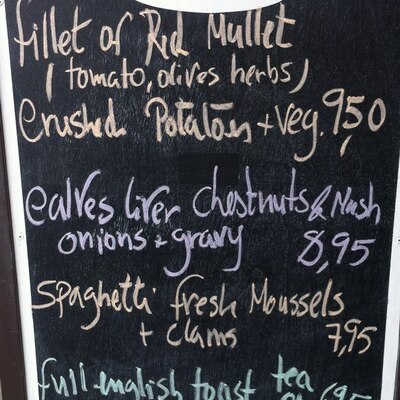 fillet of Red Mullet
(tomato, olives herbs)
Crushed Potatoes + Veg. 9,50
calves liver chestnuts & Mash
onions + gravy 8,95
Spaghetti fresh Moussels
+ clams 7,95
full english toast tea